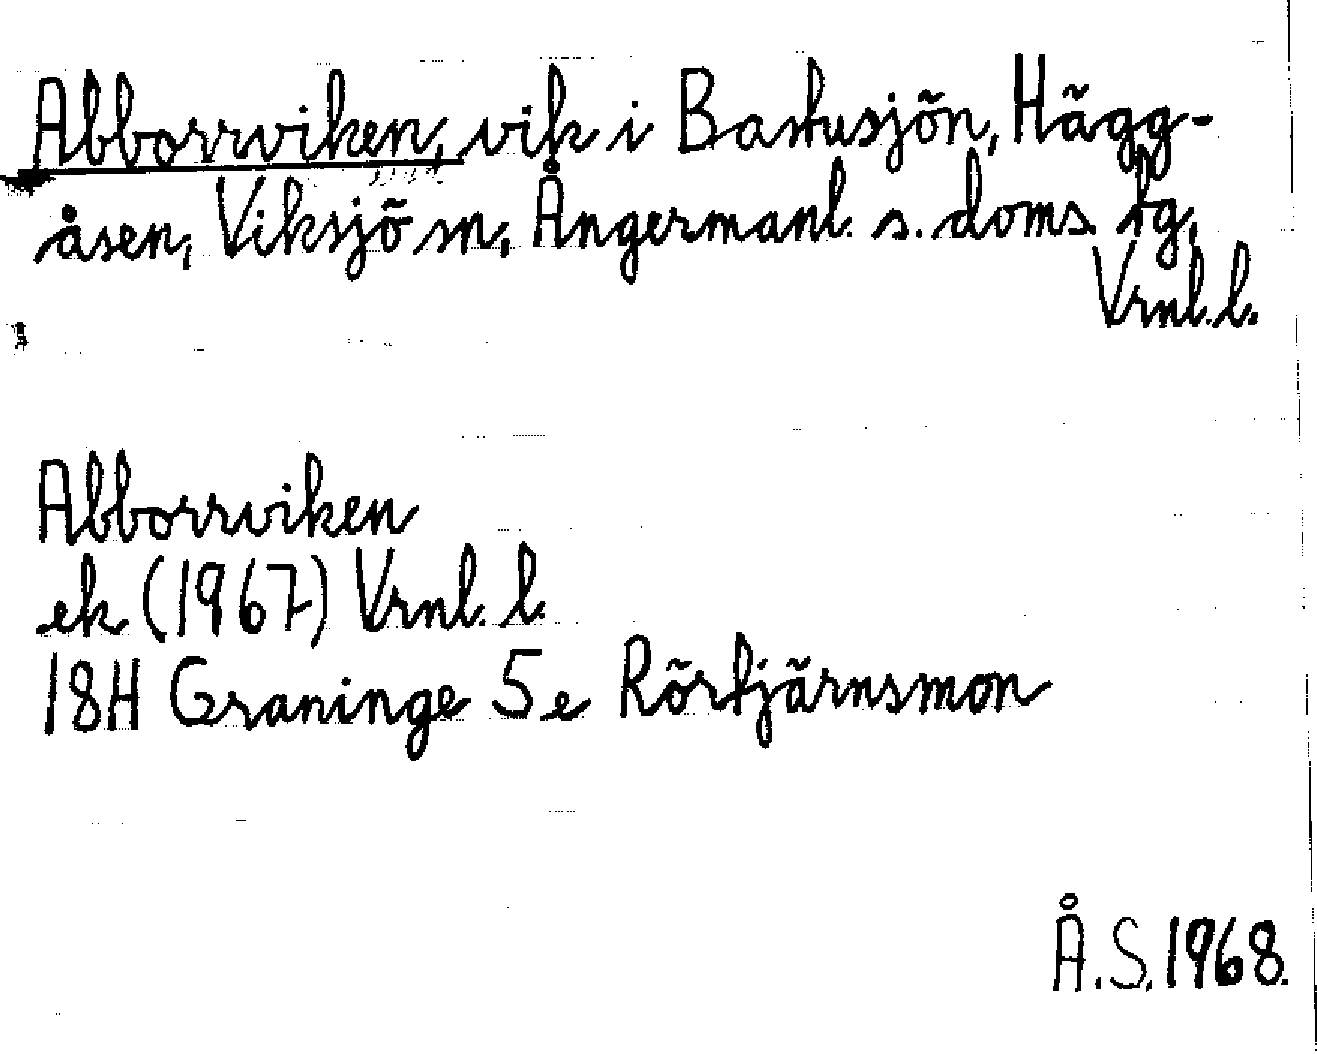 Abborrviken, vik i Bastusjön, Hägg-
åsen, Viksjö sn, Ångermanl. s. doms. hg,
Vrnl. l.
Abborrviken
ek (1967) Vrnl. l.
18H Graninge 5e Rörtjärnsmon
Å.S. 1968.